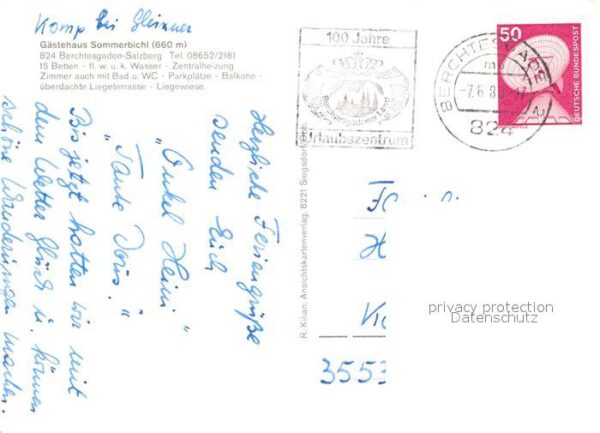 Komp bei Gleixner
Gästehaus Sommerbichl (660 m)
824 Berchtesgaden-Salzberg Tel. 08652/2161
15 Betten - fl. w. u. k. Wasser - Zentralheizung
Zimmer auch mit Bad u. WC - Parkplätze - Balkone -
überdachte Liegeterrasse - Liegewiese.
Herzliche Feriengrüße
senden Euch
"Onkel Heini"
"Tante Doris."
Bis jetzt hatten wir mit
dem Wetter Glück u. können
schöne Wanderungen machen.
R. Kilian, Ansichtskartenverlag, 8221 Siegsdorf/Obb.
100 Jahre
Berchtesgadener Land
Urlaubszentrum
BERCHTESGADEN 2
824
50
DEUTSCHE BUNDESPOST
3553
privacy protection
Datenschutz